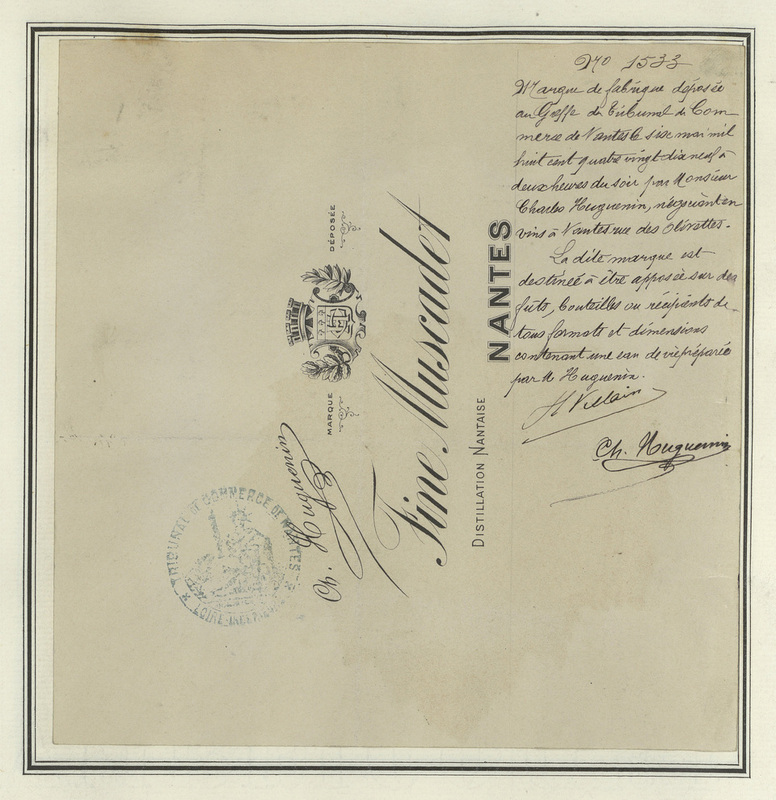 No 1533
Marque de fabrique déposée
au Greffe du Tribunal de Com-
merce de Nantes le six mai mil
huit cent quatre vingt dix neuf à
deux heures du soir par Monsieur
Charles Huguenin, négociant en
vins à Nantes rue des Olivettes.
La dite marque est
destinée à être apposée sur des
fûts, bouteilles ou récipients de
tous formats et dimensions
contenant une eau de vie préparée
par M Huguenin.
H Villain
Ch. Huguenin
MARQUE DÉPOSÉE
Fine Muscadet
DISTILLATION NANTAISE
NANTES
Ch. Huguenin
TRIBUNAL DE COMMERCE DE NANTES
LOIRE-INFÉRIEURE